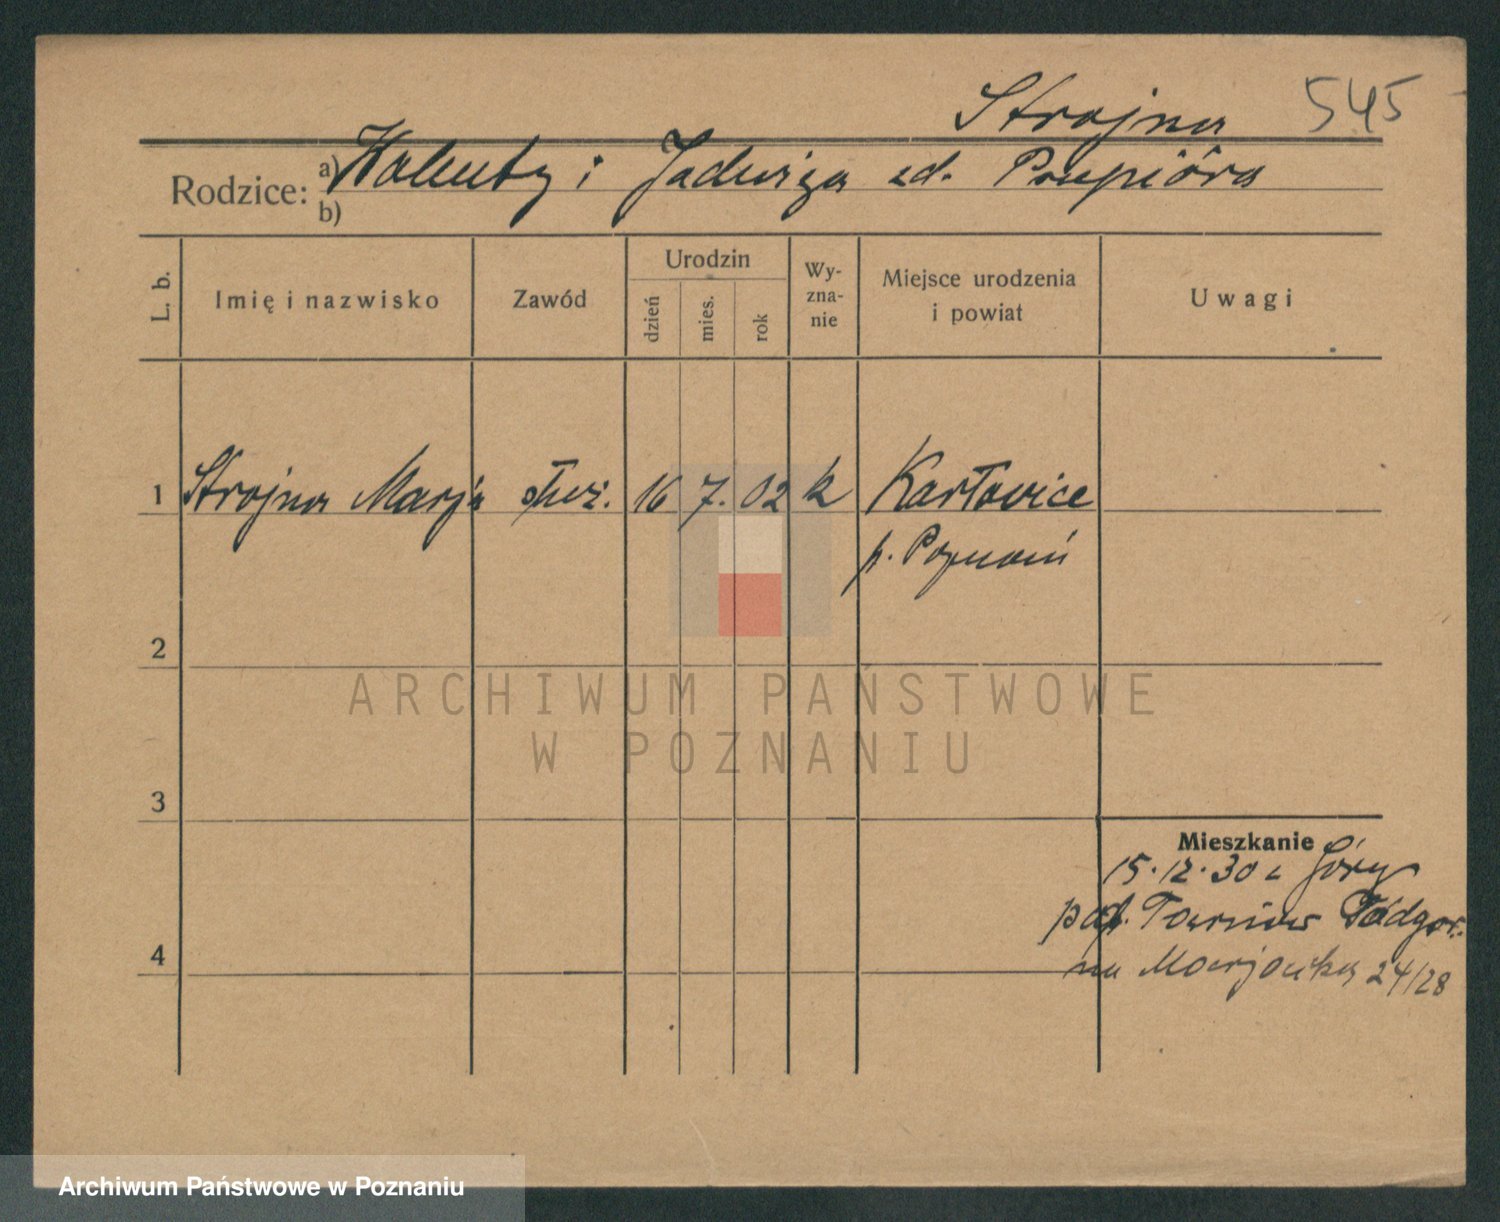 Strojna 545
Rodzice: a) Walenty i Jadwiga zd. Przepióra
b)
L. b. Imię i nazwisko Zawód Urodzin dzień mies. rok Wy-zna-nie Miejsce urodzenia i powiat Uwagi
1 Strojna Marja służ. 16 7. 02 k Karłowice
p. Poznań
2
ARCHIWUM PAŃSTWOWE
W POZNANIU
3
Mieszkanie
15.12.30 z Góry
pow. Tarnów Podgór.
na Marjacka 24/28
4
Archiwum Państwowe w Poznaniu